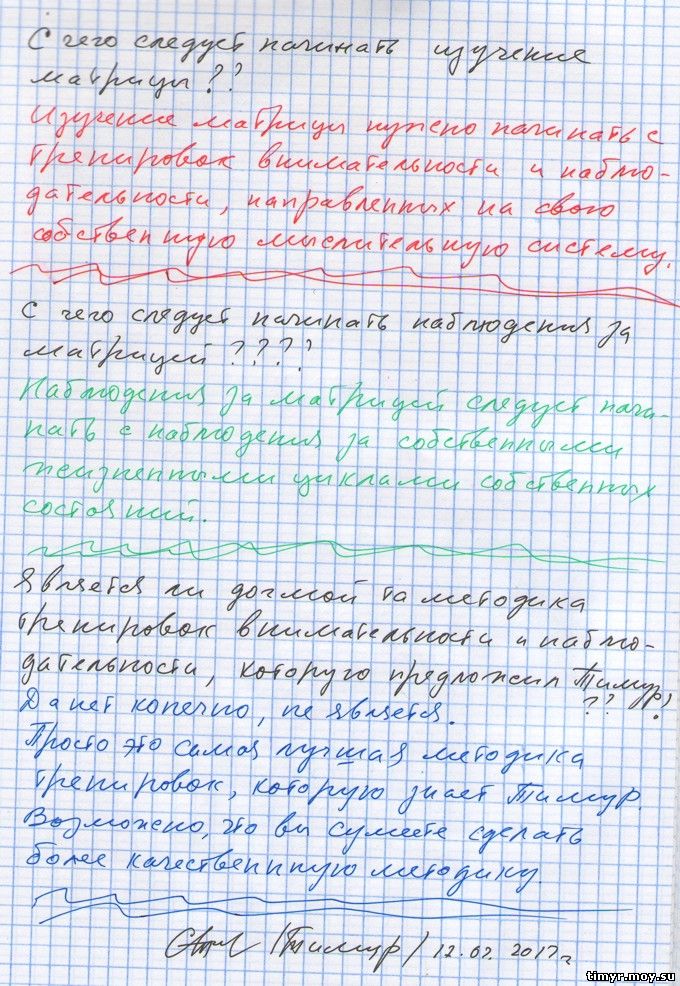 С чего следует начинать изучение
матрицы ??
Изучение матрицы нужно начинать с
тренировок внимательности и наблю-
дательности, направленных на свою
собственную мыслительную систему.
С чего следует начинать наблюдения за
матрицей ????
Наблюдения за матрицей следует начи-
нать с наблюдения за собственными
жизненными циклами собственных
состояний.
Является ли догмой та методика
тренировок внимательности и наблю-
дательности, которую предложил Тимур,
???
Да нет конечно, не является.
Просто это самая лучшая методика
тренировок, которую знает Тимур.
Возможно, что вы сумеете сделать
более качественнную методику.
/Тимур/ 12.02.2017г
timyr.moy.su